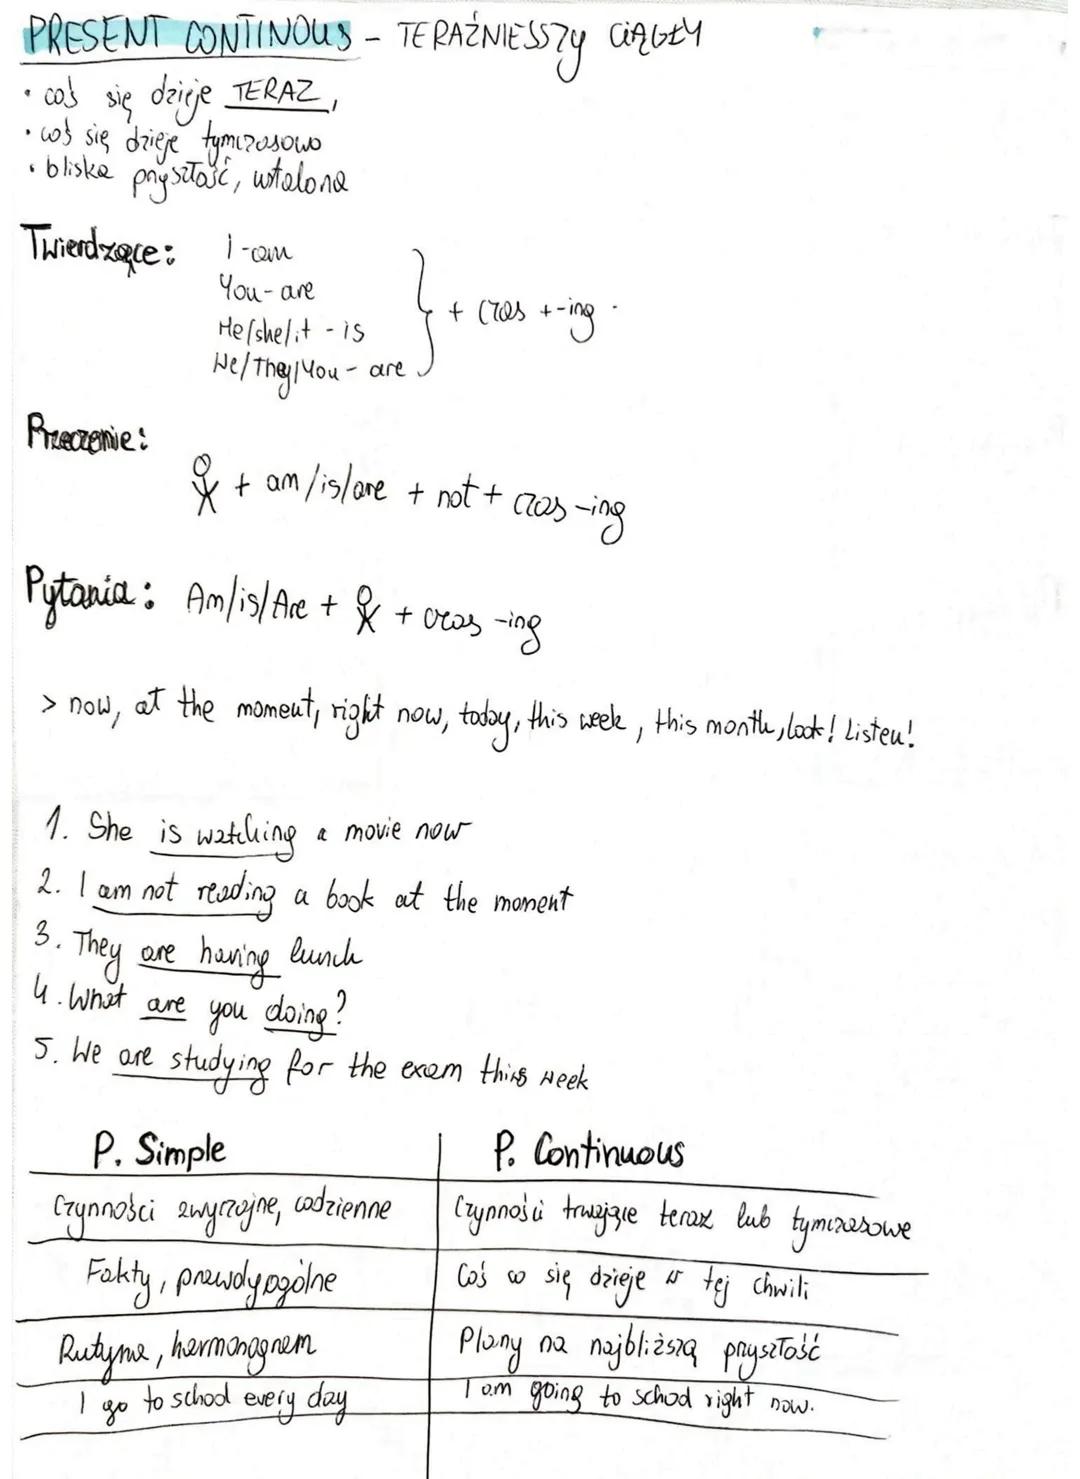 PRESENT CONTINOUS - TERAŹNIESSZY CIĄGŁY
• coś się dzieje TERAZ,
• coś się dzieje tymczasowo
• bliska przyszłość, ustalona
Twierdzące:
I - am
You - are
He/she/it - is
We/They/You - are
+ czas + -ing
Przeczenie:
+ am/is/are + not + czas -ing
Pytania: Am/is/Are + + czas -ing
> now, at the moment, right now, today, this week, this month, look! Listen!
1. She is watching a movie now
2. I am not reading a book at the moment
3. They are having lunch
4. What are you doing?
5. We are studying for the exam this week
P. Simple | P. Continuous
Czynności zwyczajne, codzienne | Czynności trwające teraz lub tymczasowe
Fakty, prawdy ogólne | Coś co się dzieje w tej chwili
Rutyna, harmonogram | Plany na najbliższą przyszłość
I go to school every day | I am going to school right now.